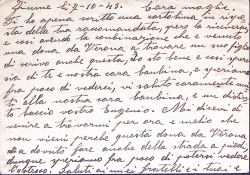 Fiume li 7-10-43. Cara moglie.
Ti ho apena scritto una cartolina in rispo
sta della tua raccomandata, però la
e così avendo la combinazione che è venuto
una dona da Verona a trovare un suo figlio
ti scrivo anche questa, Io sto bene e così spero
sia di te e nostra cara bambina, e sperando
fra poco di vederci, vi saluto caramente
ti alla nostra cara bambina, e un
bacio vostro Eugenio. Mi direi di
venire a trovarmi per ora è meglio che
non vieni perchè questa dona da Verona
a dovuto fare anche della strada a piedi,
dunque speriamo fra poco di potersi veder
Saluti ai miei fratelli ai tuoi e